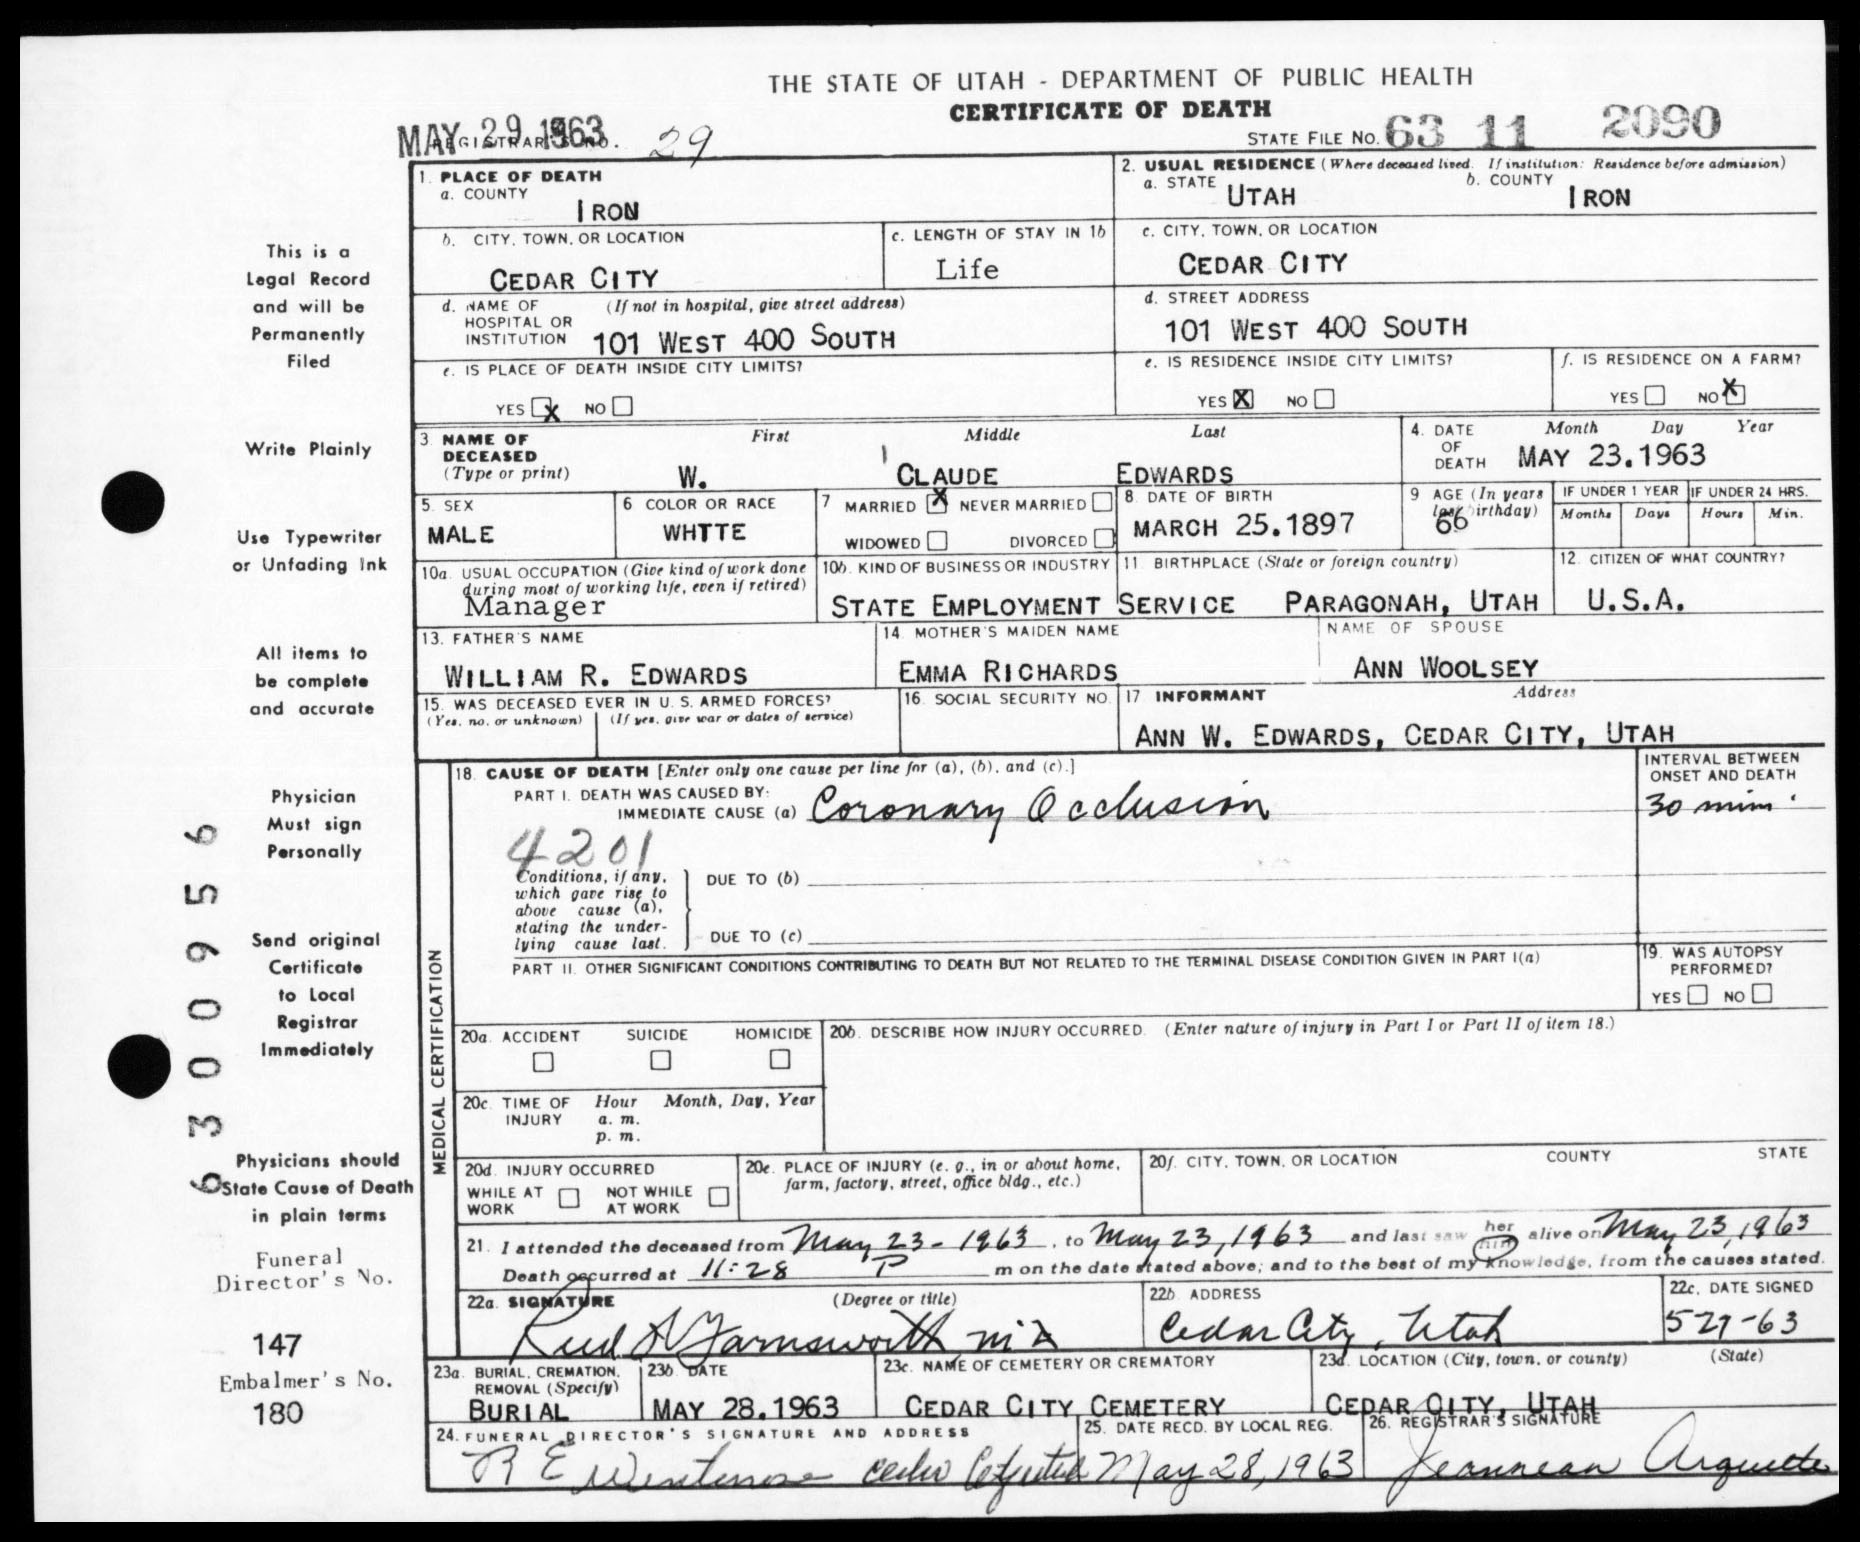 THE STATE OF UTAH - DEPARTMENT OF PUBLIC HEALTH
CERTIFICATE OF DEATH
MAY 29 1963
REGISTRAR'S NO. 29
STATE FILE NO. 63 11 2090
1. PLACE OF DEATH
a. COUNTY
IRON
2. USUAL RESIDENCE (Where deceased lived. If institution: Residence before admission)
a. STATE UTAH b. COUNTY IRON
b. CITY, TOWN, OR LOCATION
CEDAR CITY
c. LENGTH OF STAY IN 1b
Life
c. CITY, TOWN, OR LOCATION
CEDAR CITY
d. NAME OF HOSPITAL OR INSTITUTION (If not in hospital, give street address)
101 WEST 400 SOUTH
d. STREET ADDRESS
101 WEST 400 SOUTH
e. IS PLACE OF DEATH INSIDE CITY LIMITS?
YES X NO
e. IS RESIDENCE INSIDE CITY LIMITS?
YES X NO
f. IS RESIDENCE ON A FARM?
YES NO X
3. NAME OF DECEASED (Type or print)
First Middle Last
W. CLAUDE EDWARDS
4. DATE OF DEATH
Month Day Year
MAY 23.1963
5. SEX
MALE
6 COLOR OR RACE
WHTTE
7 MARRIED X NEVER MARRIED
WIDOWED DIVORCED
8. DATE OF BIRTH
MARCH 25.1897
9 AGE (In years last birthday)
66
IF UNDER 1 YEAR IF UNDER 24 HRS.
Months Days Hours Min.
10a. USUAL OCCUPATION (Give kind of work done during most of working life, even if retired)
Manager
10b. KIND OF BUSINESS OR INDUSTRY
STATE EMPLOYMENT SERVICE
11. BIRTHPLACE (State or foreign country)
PARAGONAH, UTAH
12. CITIZEN OF WHAT COUNTRY?
U.S.A.
13. FATHER'S NAME
WILLIAM R. EDWARDS
14 MOTHER'S MAIDEN NAME
EMMA RICHARDS
NAME OF SPOUSE
ANN WOOLSEY
15. WAS DECEASED EVER IN U. S. ARMED FORCES?
(Yes, no, or unknown) (If yes, give war or dates of service)
16. SOCIAL SECURITY NO.
17 INFORMANT Address
ANN W. EDWARDS, CEDAR CITY, UTAH
MEDICAL CERTIFICATION
18. CAUSE OF DEATH [Enter only one cause per line for (a), (b), and (c).]
INTERVAL BETWEEN ONSET AND DEATH
PART I. DEATH WAS CAUSED BY:
IMMEDIATE CAUSE (a) Coronary Occlusion 30 min.
4201
Conditions, if any, which gave rise to above cause (a), stating the underlying cause last.
DUE TO (b)
DUE TO (c)
PART II. OTHER SIGNIFICANT CONDITIONS CONTRIBUTING TO DEATH BUT NOT RELATED TO THE TERMINAL DISEASE CONDITION GIVEN IN PART I(a)
19. WAS AUTOPSY PERFORMED?
YES NO
20a. ACCIDENT SUICIDE HOMICIDE
20b. DESCRIBE HOW INJURY OCCURRED. (Enter nature of injury in Part I or Part II of item 18.)
20c. TIME OF INJURY Hour Month, Day, Year
a. m.
p. m.
20d. INJURY OCCURRED
WHILE AT WORK NOT WHILE AT WORK
20e. PLACE OF INJURY (e. g., in or about home, farm, factory, street, office bldg., etc.)
20f. CITY, TOWN, OR LOCATION COUNTY STATE
21. I attended the deceased from May 23 - 1963, to May 23, 1963 and last saw her him alive on May 23, 1963
Death occurred at 11:28 P m on the date stated above; and to the best of my knowledge, from the causes stated.
22a. SIGNATURE (Degree or title)
Reed A Farnsworth MD
22b. ADDRESS
Cedar City, Utah
22c. DATE SIGNED
5-27-63
23a. BURIAL, CREMATION, REMOVAL (Specify)
BURIAL
23b. DATE
MAY 28.1963
23c. NAME OF CEMETERY OR CREMATORY
CEDAR CITY CEMETERY
23d. LOCATION (City, town, or county) (State)
CEDAR CITY, UTAH
24. FUNERAL DIRECTOR'S SIGNATURE AND ADDRESS
R E Cedar City Utah
25. DATE RECD. BY LOCAL REG.
May 28, 1963
26. REGISTRAR'S SIGNATURE
Jeannean Arquette
This is a
Legal Record
and will be
Permanently
Filed
Write Plainly
Use Typewriter
or Unfading Ink
All items to
be complete
and accurate
Physician
Must sign
Personally
Send original
Certificate
to Local
Registrar
Immediately
Physicians should
State Cause of Death
in plain terms
Funeral
Director's No.
147
Embalmer's No.
180
6300956